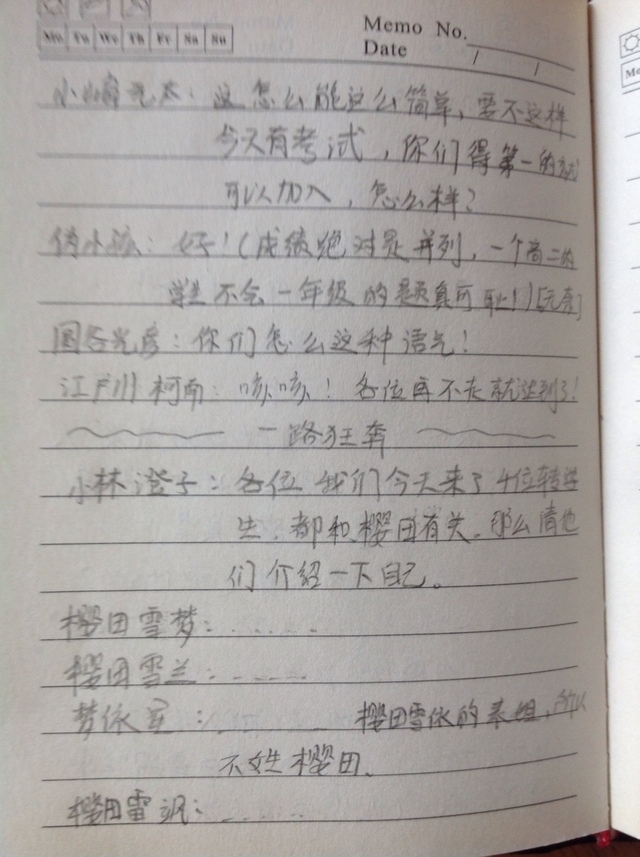 Mo Tu We Th Fr Sa Su
Memo No.
Date / /
小嶋元太：这怎么能这么简单，要不这样
今天有考试，你们得第一的话
可以加入，怎么样？
伪小孩：好！（成绩绝对是并列，一个高二的
学生不会一年级的题真可耻！）[元彦]
圆谷光彦：你们怎么这种语气！
江户川柯南：咳咳！各位再不走就迟到了！
一路狂奔
小林澄子：各位 我们今天来了4位转学
生，都和樱田有关，那么请他
们介绍一下自己。
樱田雪梦：......
樱田雪兰：......
梦依 ：...... 樱田雪依的表姐，所以
不姓樱田、
樱田雪飒：......
Me